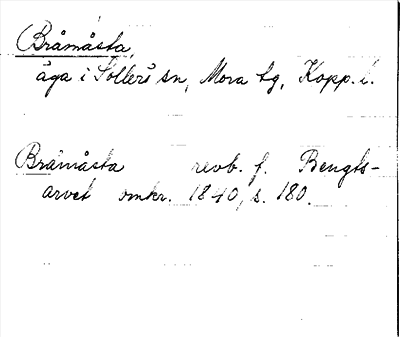 Bråmåsta,
åga i Sollerö sn, Mora tg, Kopp. l.
Bråmåsta revb. f. Bengts-
arvet omkr. 1840, s. 180.